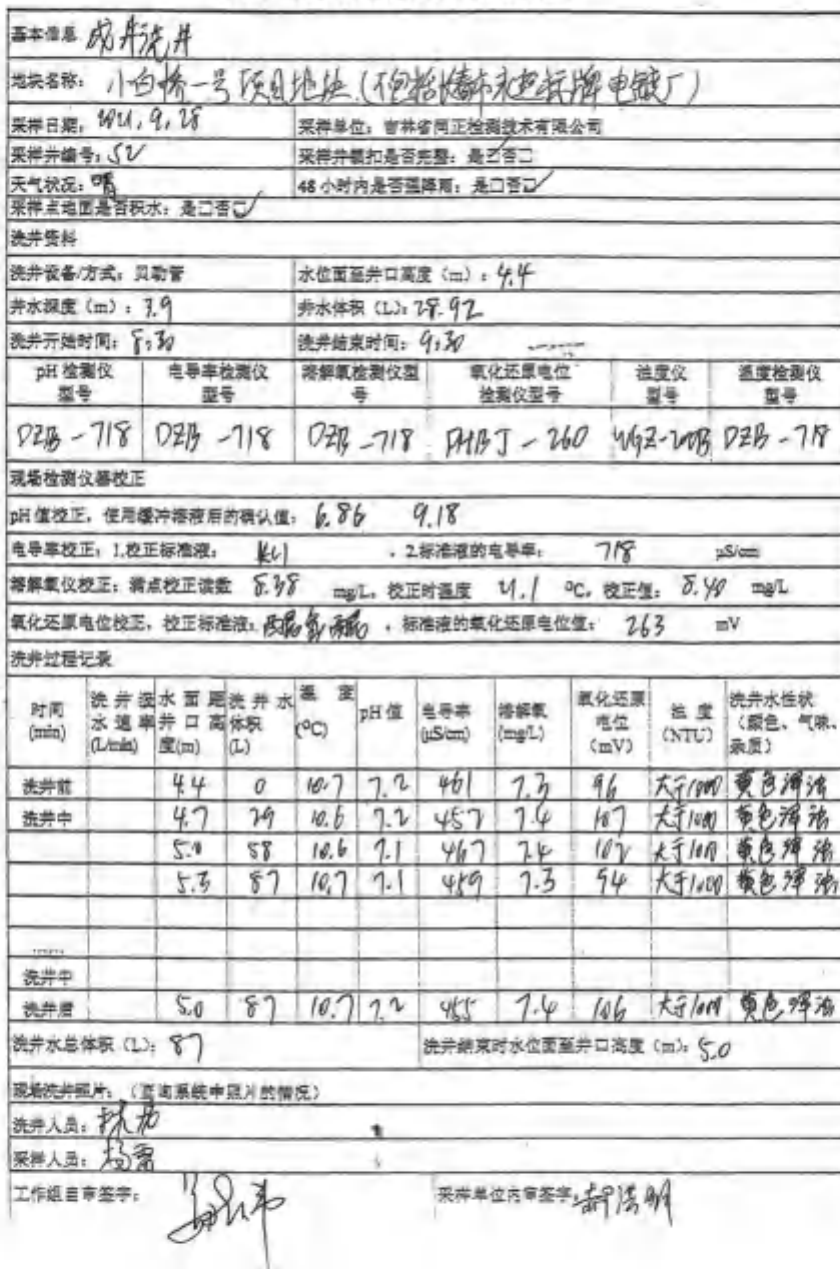 基本信息 成井洗井
地块名称： 小白桥一号项目地块（不包括长春市永超标牌电镀厂）
采样日期：2021，9，28 采样单位：吉林省同正检测技术有限公司
采样井编号：S2 采样井锁扣是否完整：是☑否□
天气状况：晴 48小时内是否强降雨：是□否☑
采样点地面是否积水：是□否☑
洗井资料
洗井设备/方式：贝勒管 水位面至井口高度（m）：4.4
井水深度（m）：7.9 井水体积（L）：28.92
洗井开始时间：8:30 洗井结束时间：9:30
pH检测仪型号 电导率检测仪型号 溶解氧检测仪型号 氧化还原电位检测仪型号 浊度仪型号 温度检测仪型号
DZB-718 DZB-718 DZB-718 PHBJ-260 WGZ-200B DZB-718
现场检测仪器校正
pH值校正，使用缓冲溶液后的确认值：6.86 9.18
电导率校正：1.校正标准液： KCl ，2.标准液的电导率： 718 μS/cm
溶解氧仪校正：满点校正读数 8.38 mg/L，校正时温度 21.1 ℃，校正值：8.40 mg/L
氧化还原电位校正，校正标准液： ，标准液的氧化还原电位值： 263 mV
洗井过程记录
时间(min) 洗井汲水速率(L/min) 水面距井口高度(m) 洗井水体积(L) 温度(℃) pH值 电导率(μS/cm) 溶解氧(mg/L) 氧化还原电位(mV) 浊度(NTU) 洗井水性状（颜色、气味、杂质）
洗井前 4.4 0 10.7 7.2 461 7.3 96 大于1000 黄色浑浊
洗井中 4.7 29 10.6 7.2 457 7.4 107 大于1000 黄色浑浊
5.0 58 10.6 7.1 467 7.4 102 大于1000 黄色浑浊
5.3 87 10.7 7.1 459 7.3 94 大于1000 黄色浑浊
……
洗井中
洗井后 5.0 87 10.7 7.2 455 7.4 106 大于1000 黄色浑浊
洗井水总体积（L）：87 洗井结束时水位面至井口高度（m）：5.0
现场洗井照片：（查询系统中照片的情况）
洗井人员：
采样人员：杨雷
工作组自审签字： 采样单位内审签字：郝浩明